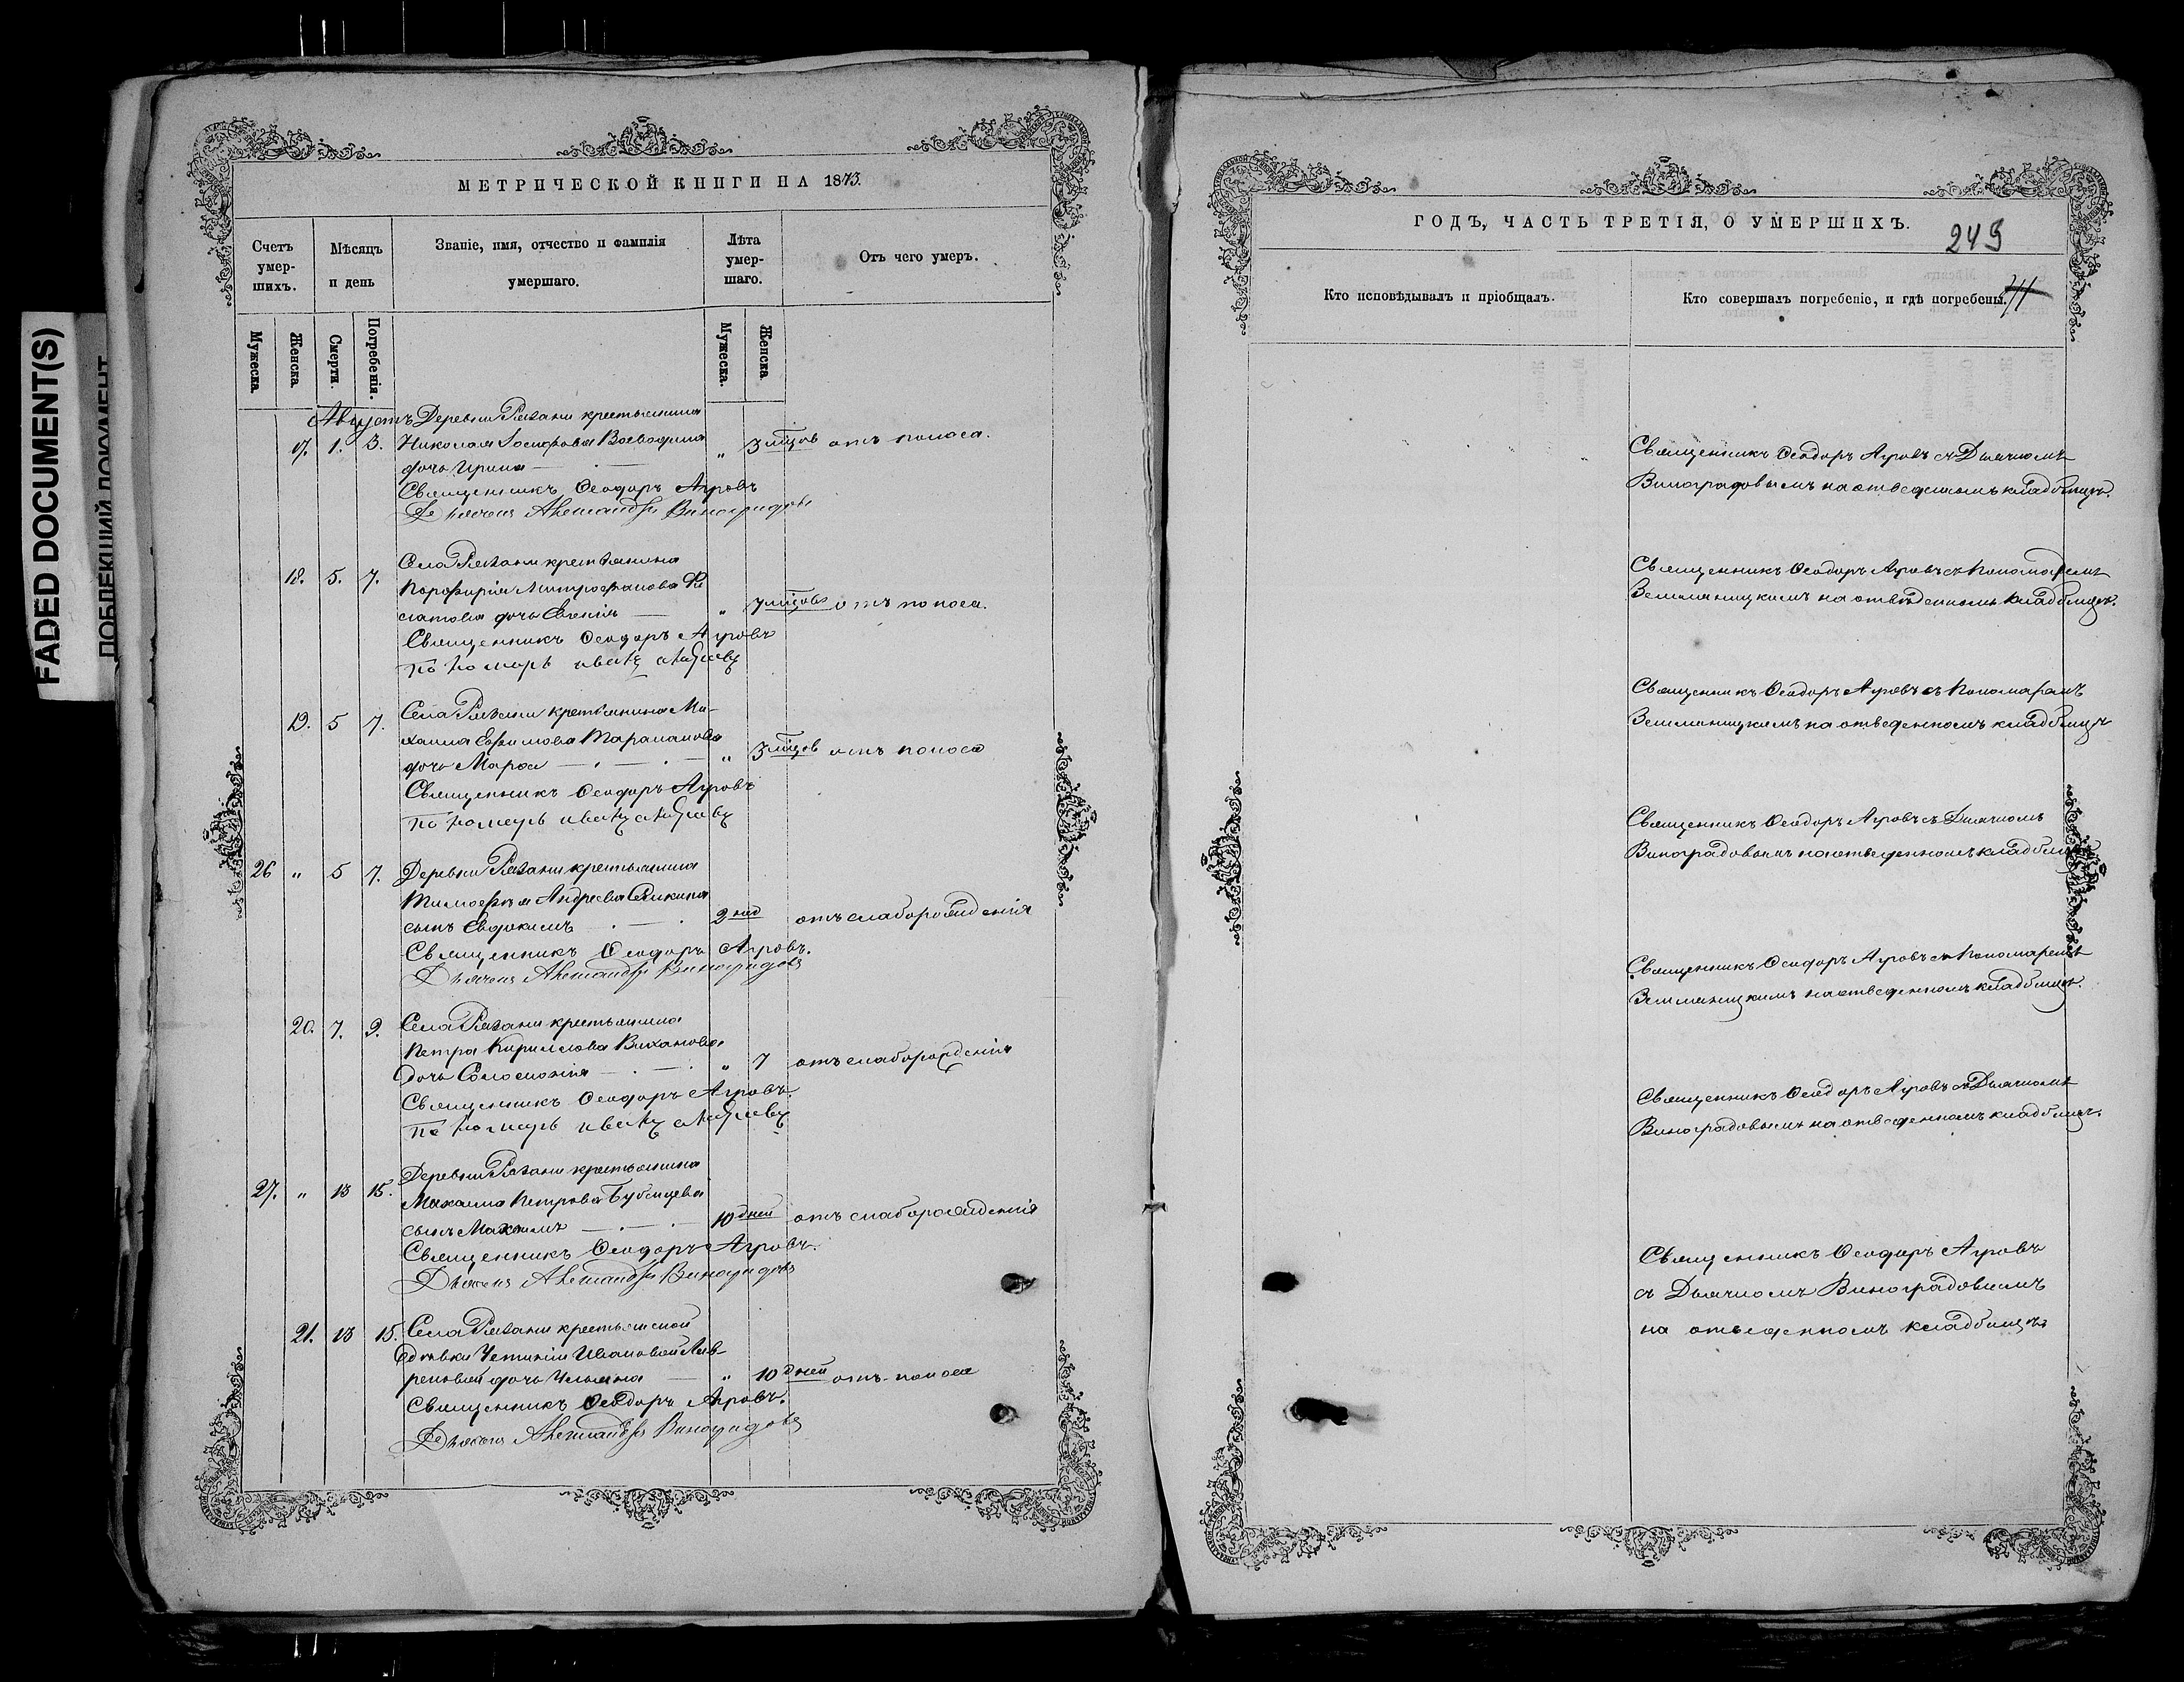 FADED DOCUMENT(S)
ПОБЛЕКШИЙ ДОКУМЕНТ
МЕТРИЧЕСКОЙ КНИГИ НА 1873.
Счетъ умер-шихъ.
Мѣсяцъ и день
Званіе, имя, отчество и фамилія умершаго.
Лѣта умер-шаго.
Отъ чего умеръ.
Мужеска.
Женска
Смерти.
Погребенія.
Мужеска.
Женска
Августъ Деревни Рязани крестьянина
17. 1. 3. Николая Іосифова Воеводина „ 3 мѣсцов отъ поноса.
дочь Ирина
Священникъ Ѳеодоръ Агровъ
Дьячекъ Александръ Виноградовъ
Села Рязани крестьянина
18. 5. 7. Порфирія Митрофанова
дочь „ 7 мѣсцов отъ поноса.
Священникъ Ѳеодоръ Агровъ
Пономарь Иванъ
Села Рязани крестьянина Ми-
19. 5 7. хаила Ефимова
дочь Марѳа „ 3 мѣсцов отъ поноса
Священникъ Ѳеодоръ Агровъ
Пономарь Иванъ
26 „ 5 7. Деревни Рязани крестьянина
Тимоѳея Андреева
сынъ Евдокимъ 2 нед отъ слаборожденія
Священникъ Ѳеодоръ Агровъ.
Дьячекъ Александръ Виноградовъ
20. 7. 9. Села Рязани крестьянина
Петра Кириллова
дочь Соломонія „ 7 отъ слаборожденія
Священникъ Ѳеодоръ Агровъ.
Пономарь Иванъ
Деревни Рязани крестьянина
27. „ 13 15. Михаила Петрова
сынъ Максимъ 10 дней отъ слаборожденія
Священникъ Ѳеодоръ Агровъ.
Дьячекъ Александръ Виноградовъ
21. 13 15. Села Рязани крестьянской
дѣвки Ивановой Лав-
реновой дочь Ульяна „ 10 дней отъ поноса
Священникъ Ѳеодоръ Агровъ.
Дьячекъ Александръ Виноградовъ
ГОДЪ, ЧАСТЬ ТРЕТІЯ, О УМЕРШИХЪ.
249
Кто исповѣдывалъ и пріобщалъ.
Кто совершалъ погребеніе, и гдѣ погребены.
Священникъ Ѳеодоръ Агровъ съ Дьячкомъ
Виноградовымъ на отведенномъ кладбищѣ.
Священникъ Ѳеодоръ Агровъ съ Пономаремъ
Земляницкимъ на отведенномъ кладбищѣ.
Священникъ Ѳеодоръ Агровъ съ Пономаремъ
Земляницкимъ на отведенномъ кладбищѣ
Священникъ Ѳеодоръ Агровъ съ Дьячкомъ
Виноградовымъ на отведенномъ кладбищѣ
Священникъ Ѳеодоръ Агровъ съ Пономаремъ
Земляницкимъ на отведенномъ кладбищѣ.
Священникъ Ѳеодоръ Агровъ съ Дьячкомъ
Виноградовымъ на отведенномъ кладбищѣ.
Священникъ Ѳеодоръ Агровъ
съ Дьячкомъ Виноградовымъ
на отведенномъ кладбищѣ